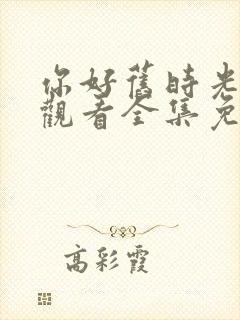 你好舊時光
觀看全集免
高彩霞